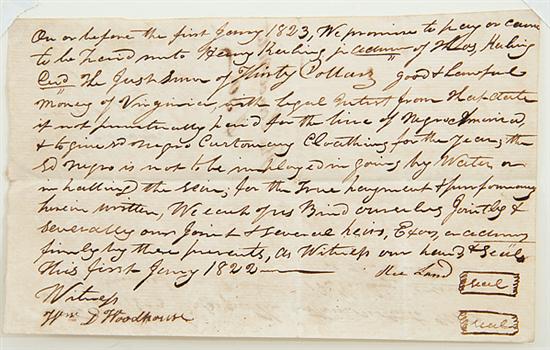 On or before the first Janry 1823, We promise to pay or cause
to be paid unto Henry Keeling jr admr of Thos Keeling
Decd The Just Sum of Thirty Dollars good & Lawful
money of Virginia, with legal Intrest from that date
if not punctually paid for the hire of Negro America
& to give sd Negro Customary Cloathing for the Year, the
sd Negro is not to be employed in going by Water or
in hauling the sean, for the True payment & performance
herein written, We each of us Bind ourselves Jointly &
severally our Joint & several heirs, Exors, or admrs
firmly by these presents, as Witness our hand & Seals
This first Janry 1822
Land
Seal
Witness
Wm D Woodhouse
Seal